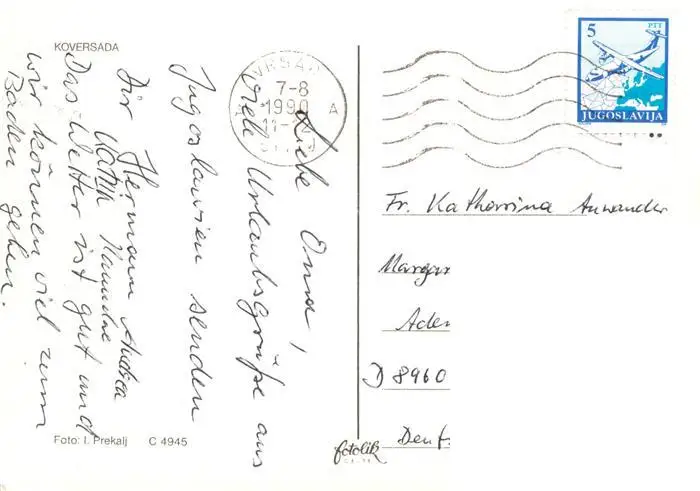 KOVERSADA
Liebe Oma,
Viele Urlaubsgrüße aus
Jugoslawien senden
Dir Hermann Andrea
Das Wetter ist gut und
wir können viel zum
Baden gehen.
Foto: I. Prekalj C 4945
fotolik
VRSAR
7-8
1990
A
5
PTT
JUGOSLAVIJA
Fr. Katharina Anwander
Margar
Aden
D 8960
Deut